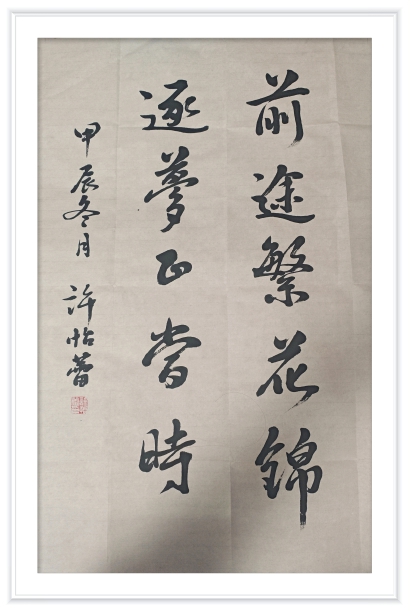 前途繁花錦
逐夢正當時
甲辰冬月 許怡蕾